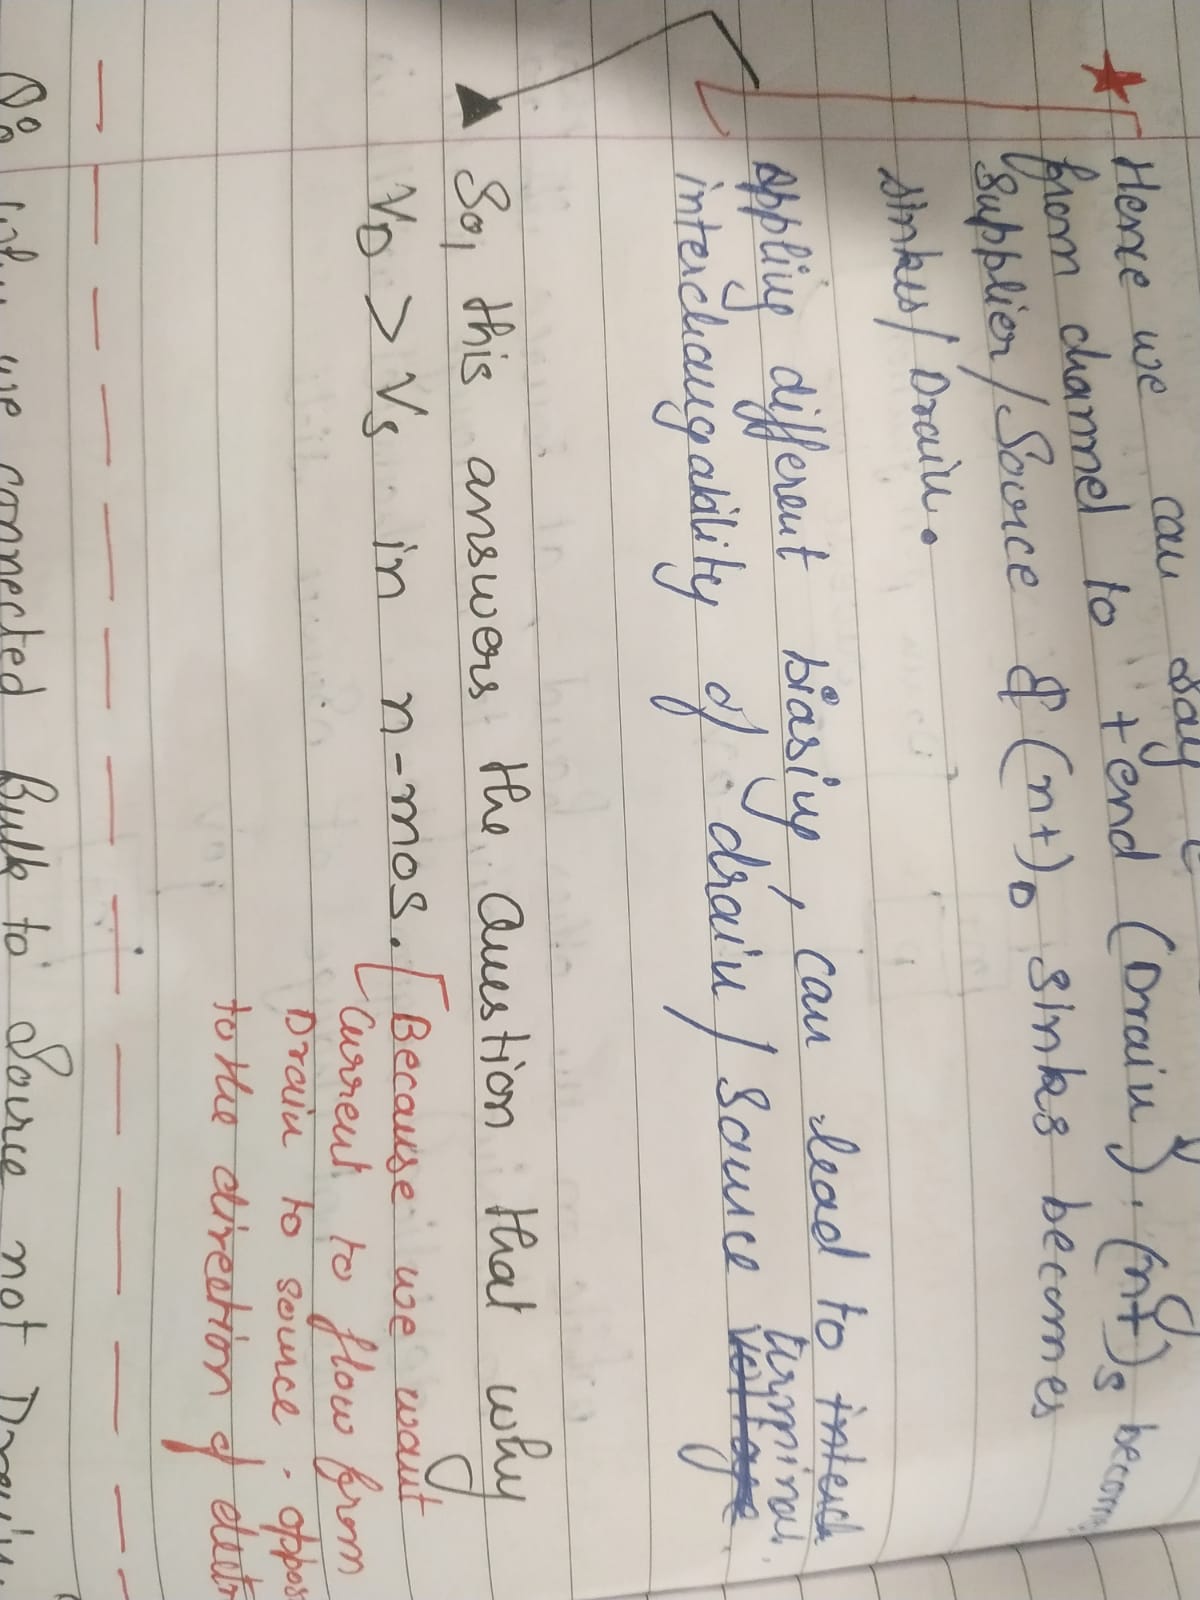 Hence we can say
from channel to + end (Drain). (n+)s
Supplier/Source & (n+)D sinks becomes
sinks/ Drain.
Appling different biasing, can lead to interch
terminal.
interchangability of drain/ Source voltage.
So, this answers the Question that why
VD > VS in n-mos. [Because we want
Current to flow from
Drain to source.
to the direction of
Q: Why we connected Bulk to Source not Drain.